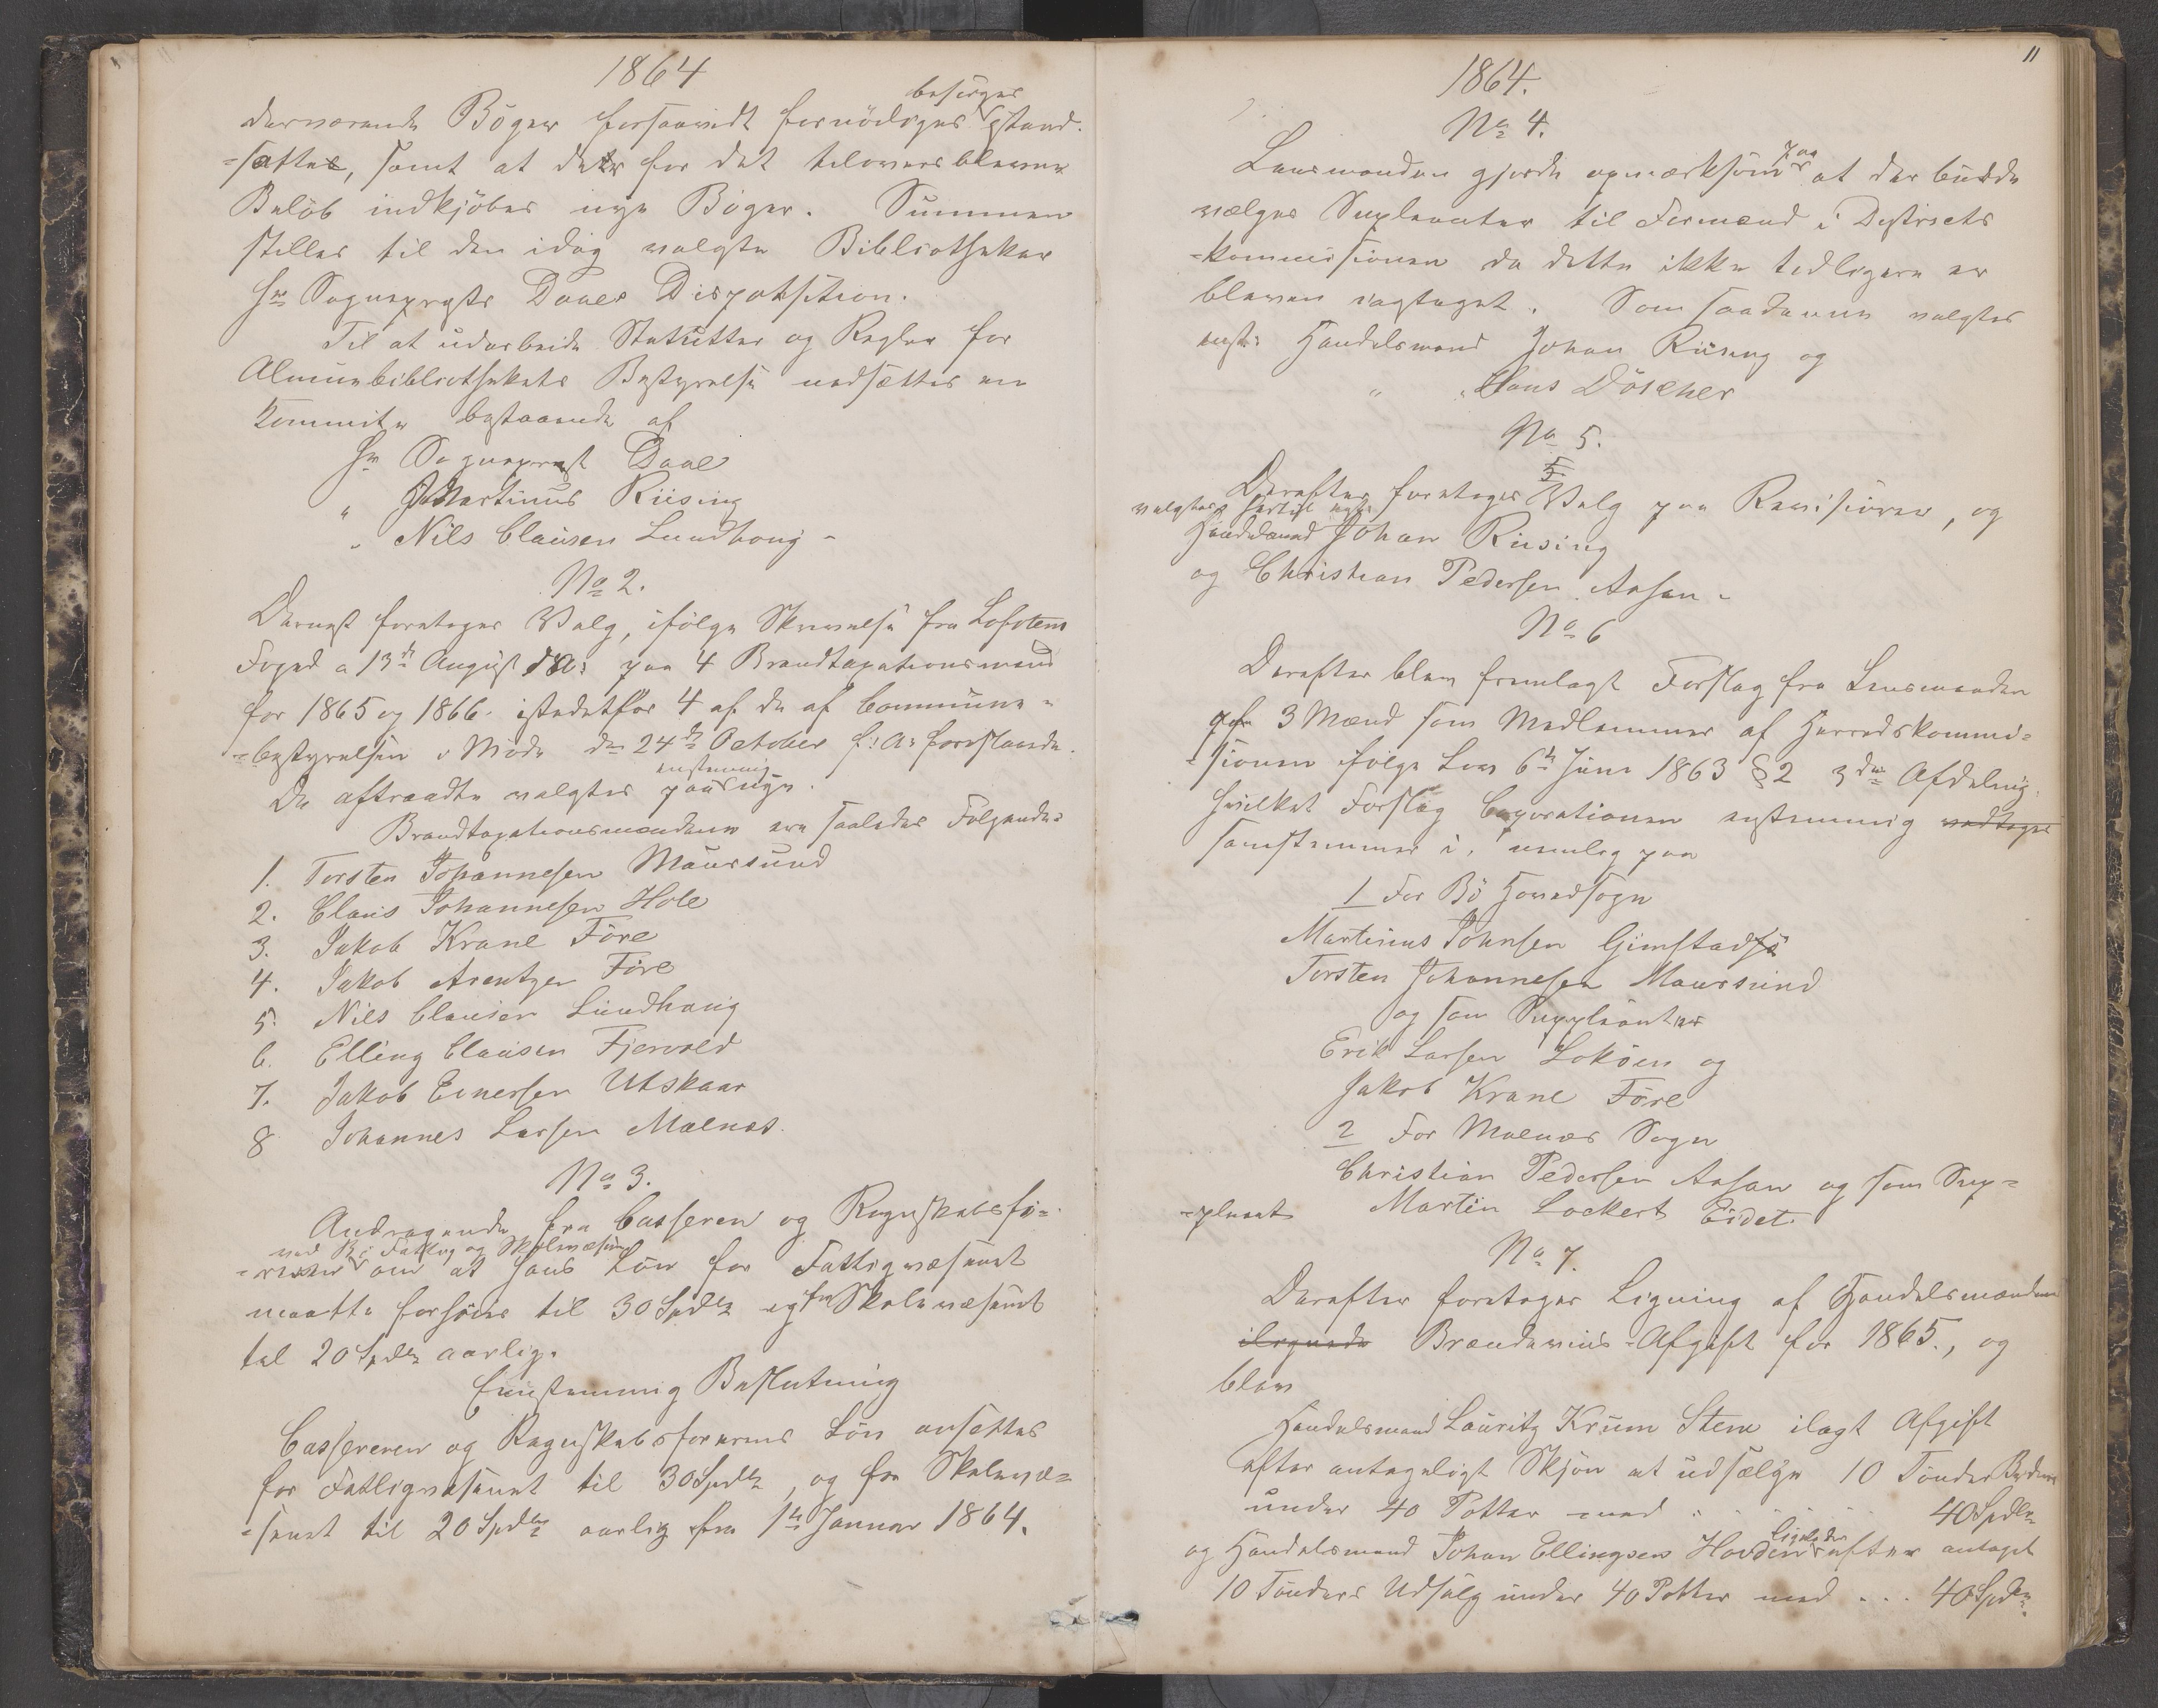 1864
besörges
derværende Böger forsaavidt fornödiges istand-
=sættes, samt at der for det tiloversblevne
Belöb indkjöbes nye Böger. Summen
stilles til den idag valgte Bibliothekar
Hr Sogneprest Daaes Dispotsition.
Til at udarbeide Statutter og Regler for
Almuebibliothekets Bestyrelse nedsættes en
Kommite bestaaende af
Hr Sogneprest Daae
" Martinus Riising
" Nils Clausen Lundhoug -
No 2.
Dernest foretoges Valg, ifölge Skrivelse fra Lofotens
Foged a 13de August d:A: paa 4 Brandtaxationsmænd
for 1865 og 1866. istedetfor 4 af de af Commune-
=bestyrelsen i Möde den 24de October f:A: foreslaaede.
enstemmig
De aftraadte valgtes paa nye.
Brandtaxationsmændene ere saaledes Fölgende:
1. Torsten Johannesen Maursund
2. Claus Johannesen Hole
3. Jakob Krane Före
4. Jakob Arentzen Före
5. Nils Clausen Lundhaug
6. Elling Clausen Fjervold
7. Jakob Einersen Utskaar
8 Johannes Larsen Malnes.
No 3.
Andragende fra Casseren og Regnskabsfö-
ved Bö Fattig og Skolevæsen
=reren om at hans Lön for Fattigvæsenet
maatte forhöies til 30 Spdlr og for Skolevæsenet
til 20 Spdlr aarlig.
Eenstemmig Beslutning
Cassereren og Regnskabsförerens Lön ansettes
for Fattigvæsenet til 30 Spdlr, og for Skolevæ-
=senet til 20 Spdlr aarlig fra 1ste Januar 1864.
11
1864.
No 4.
paa
Lensmanden gjorde opmærksom at der burde
vælges Supleanter til Formænd i Distrikts
=kommissionen da dette ikke tidligere er
bleven iagttaget. Som saadanne valgtes
enst: Handelsmand Johan Riising og
" " Claus Döscher
No 5.
Derefter foretoges Valg paa Revisorer, og
valgtes hertil
Handelsmand Johan Riising
og Christian Pedersen Aasan -
No 6
Derefter blev fremlagt Forslag fra Lensmanden
paa 3 Mænd som Medlemmer af Herredskommi-
=sionen ifölge Lov 6te Juni 1863 § 2 3die Afdeling.
hvilket Forslag Coporationen enstemmig vedtoges
samstemmer i, nemlig paa
1 For Bö Hovedsogn
Martinus Johnsen Gimstad
Torsten Johannesen Maursund
og som Suppleanter
Erik Larsen Loköen og
Jakob Krane Före
2 For Malnes Sogn
Christian Pedersen Aasan og som Sup-
=pleant Martin Lockert Eidet.
No 7.
Derefter foretoges Ligning af Handelsmændene
ilignede Brændeviins-Afgift for 1865., og
blev
Handelsmand Lauritz Krum Stene ilagt Afgift
efter antageligt Skjön at udsælge 10 Tönder
under 40 Potter med . . . . . 40 Spdlr
Ligeledes
og Handelsmand Johan Ellingsen Hovden efter antaget
10 Tönders Udsalg under 40 Potter med . . . 40 Spdlr.